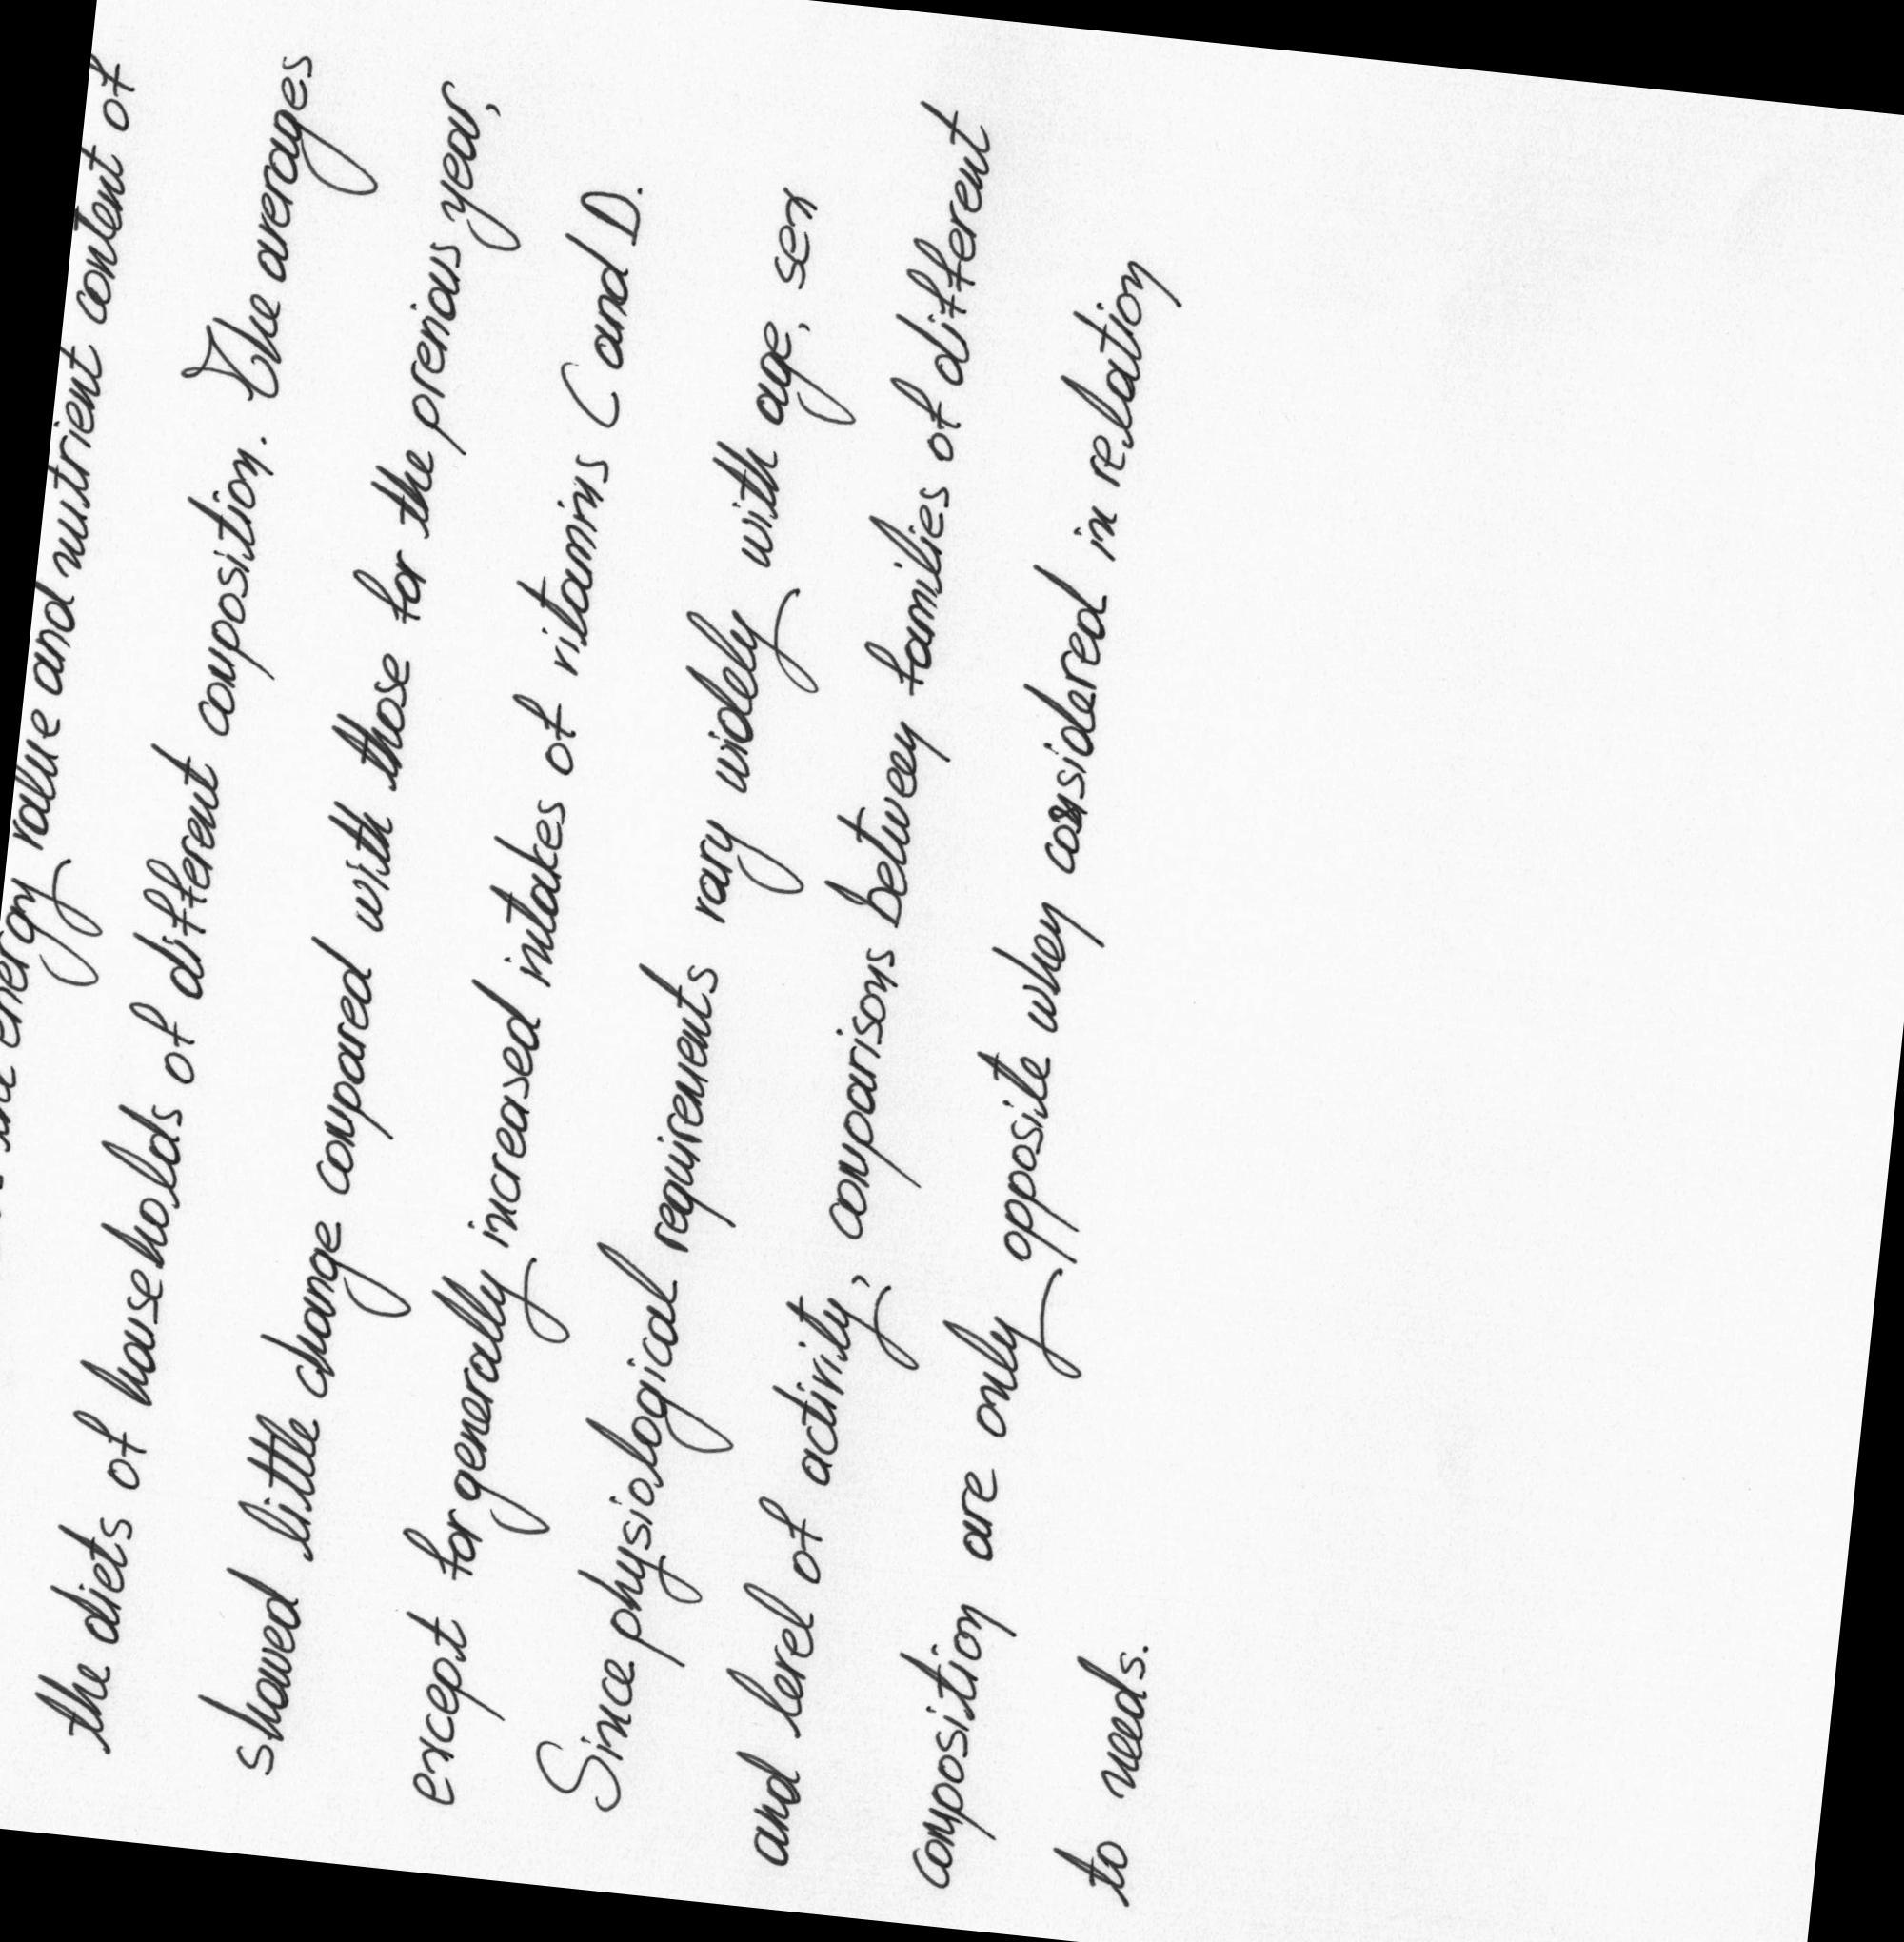 the energy value and nutrient content of
the diets of households of different composition. The averages
showed little change compared with those for the previous year,
except for generally increased intakes of vitamins C and D.
Since physiological requirements vary widely with age, sex
and level of activity, comparisons between families of different
composition are only opposite when considered in relation
to needs.